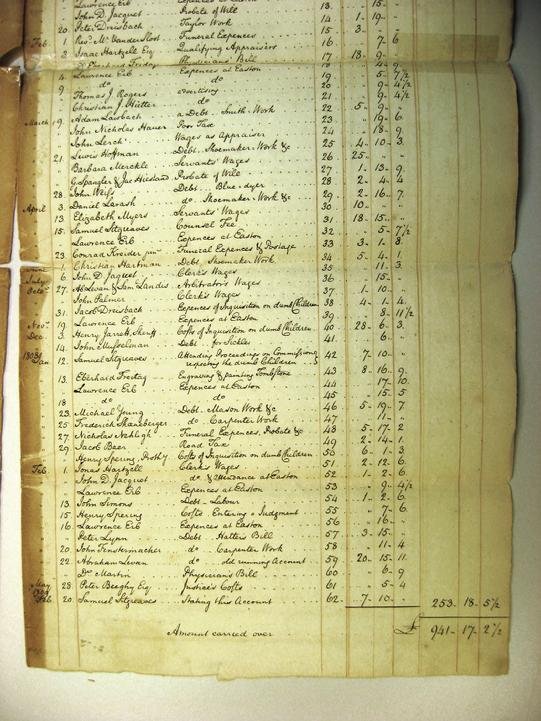 Lawrence Erb Expences at Easton 15 "
John D. Jacquet Probate of Will 13 " 15 "
20 Peter Dreisbach Taylor Work 14 1 19 "
Feb 1 Revd Mr Vandersloot Funeral Expences 15 3 " "
2 Isaac Hartzell Esq Qualifying Appraisers 16 " 7 6
" Dr Eberhard Freitag Physicians' Bill 17 18 9 "
4 Lawrence Erb Expences at Easton 18 " 4 9
" do do 19 " 5 7 1/2
9 Thomas J. Rogers advertising 20 " 9 4 1/2
" Christian J. Hütter do 21 " 9 4 1/2
March 9 Adam Laubach a Debt. Smith-Work 22 5 9 "
" John Nicholas Hauer Poor Tax 23 " 19 6
" John Lerch Wages as Appraiser 24 " 18 9
21 Lewis Hoffman Debt. Shoemaker-Work &c 25 4 10 3
" Barbara Merckle Servants' Wages 26 25 " "
" G. Spangler & Jac Hiestand Probate of Will 27 1 13 9
28 John Weiss Debt. Blue-dyer 28 2 4 4
April 3 Daniel Larash do. Shoemaker-Work &c 29 2 16 7
13 Elizabeth Myers Servants' Wages 30 10 " "
15 Samuel Sitgreaves Counsel Fee 31 18 15 "
" Lawrence Erb Expences at Easton 32 " 5 7 1/2
23 Conrad Kreider junr Funeral Expences & Postage 33 3 1 8
1 Christian Hartman Debt. Shoemaker Work 34 5 4 1
June 6 John D. Jaquet Clerk's Wages 35 " 11 3
July " Ab. Levan & Sam Landis Arbitrator's Wages 36 " 15 "
Octr 27 John Palmer Clerk's Wages 37 1 10 "
31 Jacob Dreisbach Expences of Inquisition on dumb Children 38 4 1 4
" Lawrence Erb Expences at Easton 39 " 8 11 1/2
Novr 19 Henry Jarrett Sheriff Costs of Inquisition on dumb Children 40 28 6 3
Dec 3 John Musselman Debt for Sickles 41 " 6 "
14 Samuel Sitgreaves Attending Proceedings on Commissions respecting the dumb Children 42 7 10 "
Jan 12
13 Eberhard Freitag Engraving & painting Tombstone 43 8 16 9
" Lawrence Erb Expences at Easton 44 " 17 10
18 do do 45 " 15 5
23 Michael Joung Debt. Mason Work &c 46 5 19 7
25 Frederich Shanzberger do. Carpenter Work 47 " 11 "
27 Nicholas Nehligh Funeral Expences, Probate & 48 5 17 2
29 Jacob Beer Road Tax 49 2 14 1
" Henry Spering, Prothy Costs of Inquisition on dumb Children 50 6 1 3
Feb 1 Jonas Hartzell Clerk's Wages 51 2 12 6
" John D. Jacquet do & Attendance at Easton 52 1 2 6
" Lawrence Erb Expences at Easton 53 " 9 4 1/2
13 John Simons Debt - Labour 54 1 2 6
15 Henry Spering Costs Entering a Judgment 55 " 7 6
16 Lawrence Erb Expences at Easton 56 " 16 "
" Peter Lynn Debt Hatters Bill 57 3 15 "
20 John Fenstermacher do Carpenter Work 58 " 11 4
22 Abraham Levan do old running Account 59 20 15 11
" Dr Martin Physician's Bill 60 " 6 9
May 23 Peter Beighy Esq Justice's Costs 61 " 5 4
Feb 20 Samuel Sitgreaves Stating this Account 62 7 10 "
253 18 5 1/2
Amount carried over £ 941 17 2 1/2